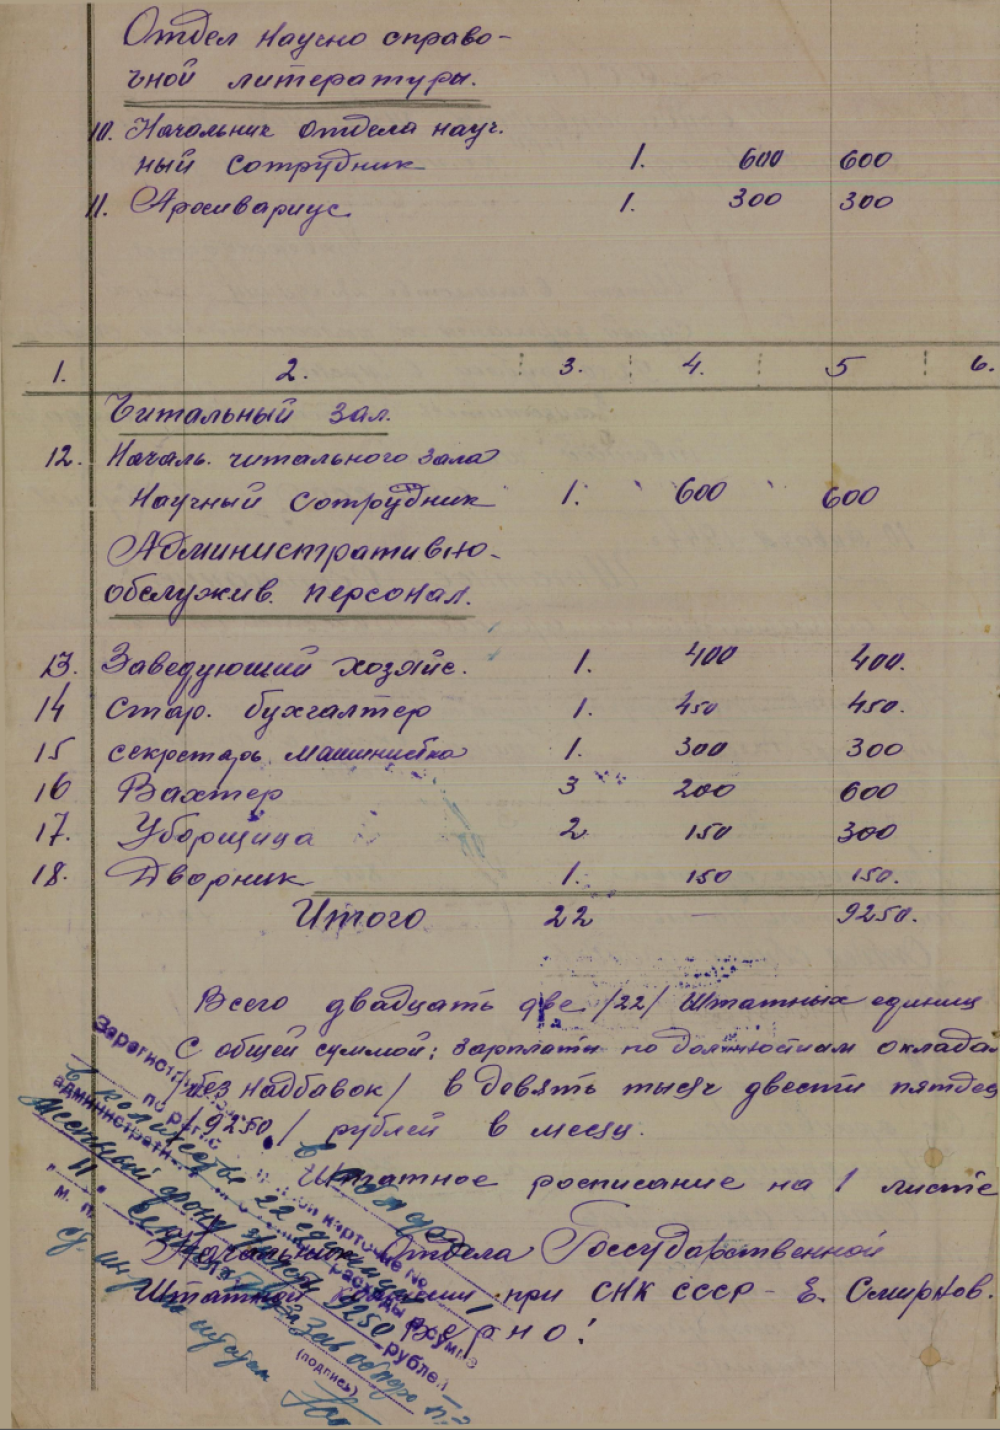 Отдел научно справо-
чной литературы.
10. Начальник отдела науч.
ный сотрудник 1. 600 600
11. Архивариус 1. 300 300
1. 2. 3. 4. 5 6.
Читальный зал.
12. Началь. читального зала
Научный сотрудник 1. 600 600
Административно-
обслужив. персонал.
13. Заведующий хозяйс. 1. 400 400.
14 Стар. бухгалтер 1. 450 450.
15 секретарь машинистка 1. 300 300
16 Вахтер 3 200 600
17. Уборщица 2 150 300
18. Дворник 1. 150 150.
Итого 22 — 9250.
Всего двадцать две /22/ штатных единиц
С общей суммой: зарплаты по должностным оклада
/без надбавок/ в девять тысяч двести пятдес
/9250/ рублей в месяц.
Штатное росписание на 1 листе
Начальник Отдела Государственной
Штатной комиссии при СНК СССР - Е. Смирнов.
Верно!
Зарегистр
по
административн
в количестве 22 единиц
карточке No
расходы в сумме
Месячный фонд 9250
рублей
м. п.
(подпись)